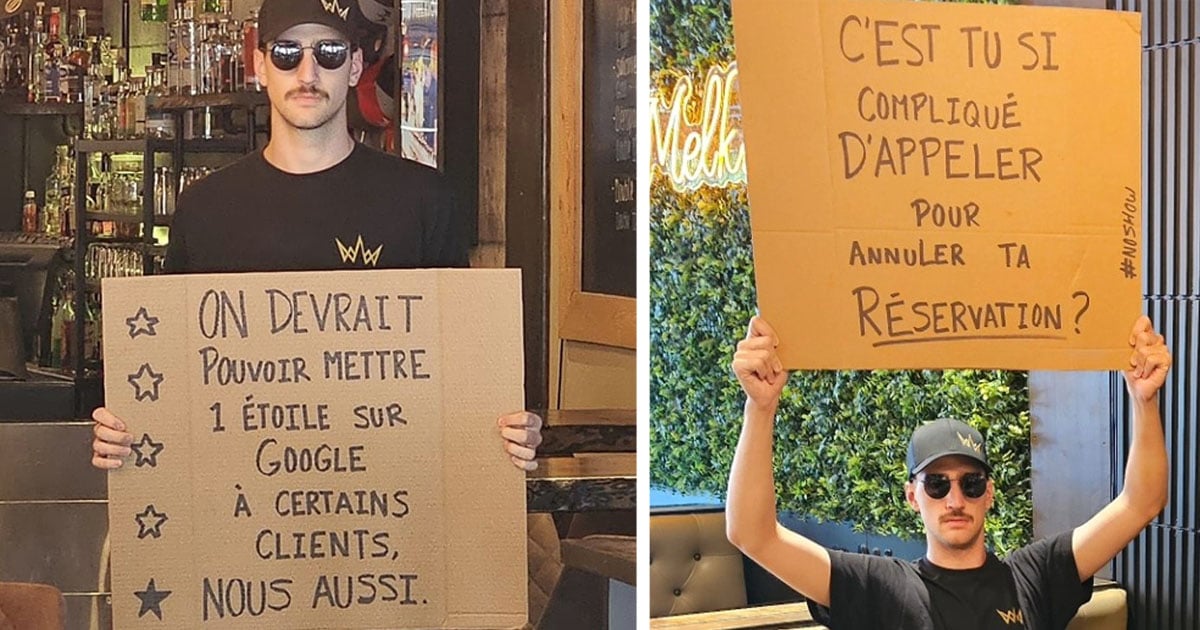 ON DEVRAIT
POUVOIR METTRE
1 ÉTOILE SUR
GOOGLE
À CERTAINS
CLIENTS,
NOUS AUSSI.
Melk
C'EST TU SI
COMPLIQUÉ
D'APPELER
POUR
ANNULER TA
RÉSERVATION?
#NOSHOW